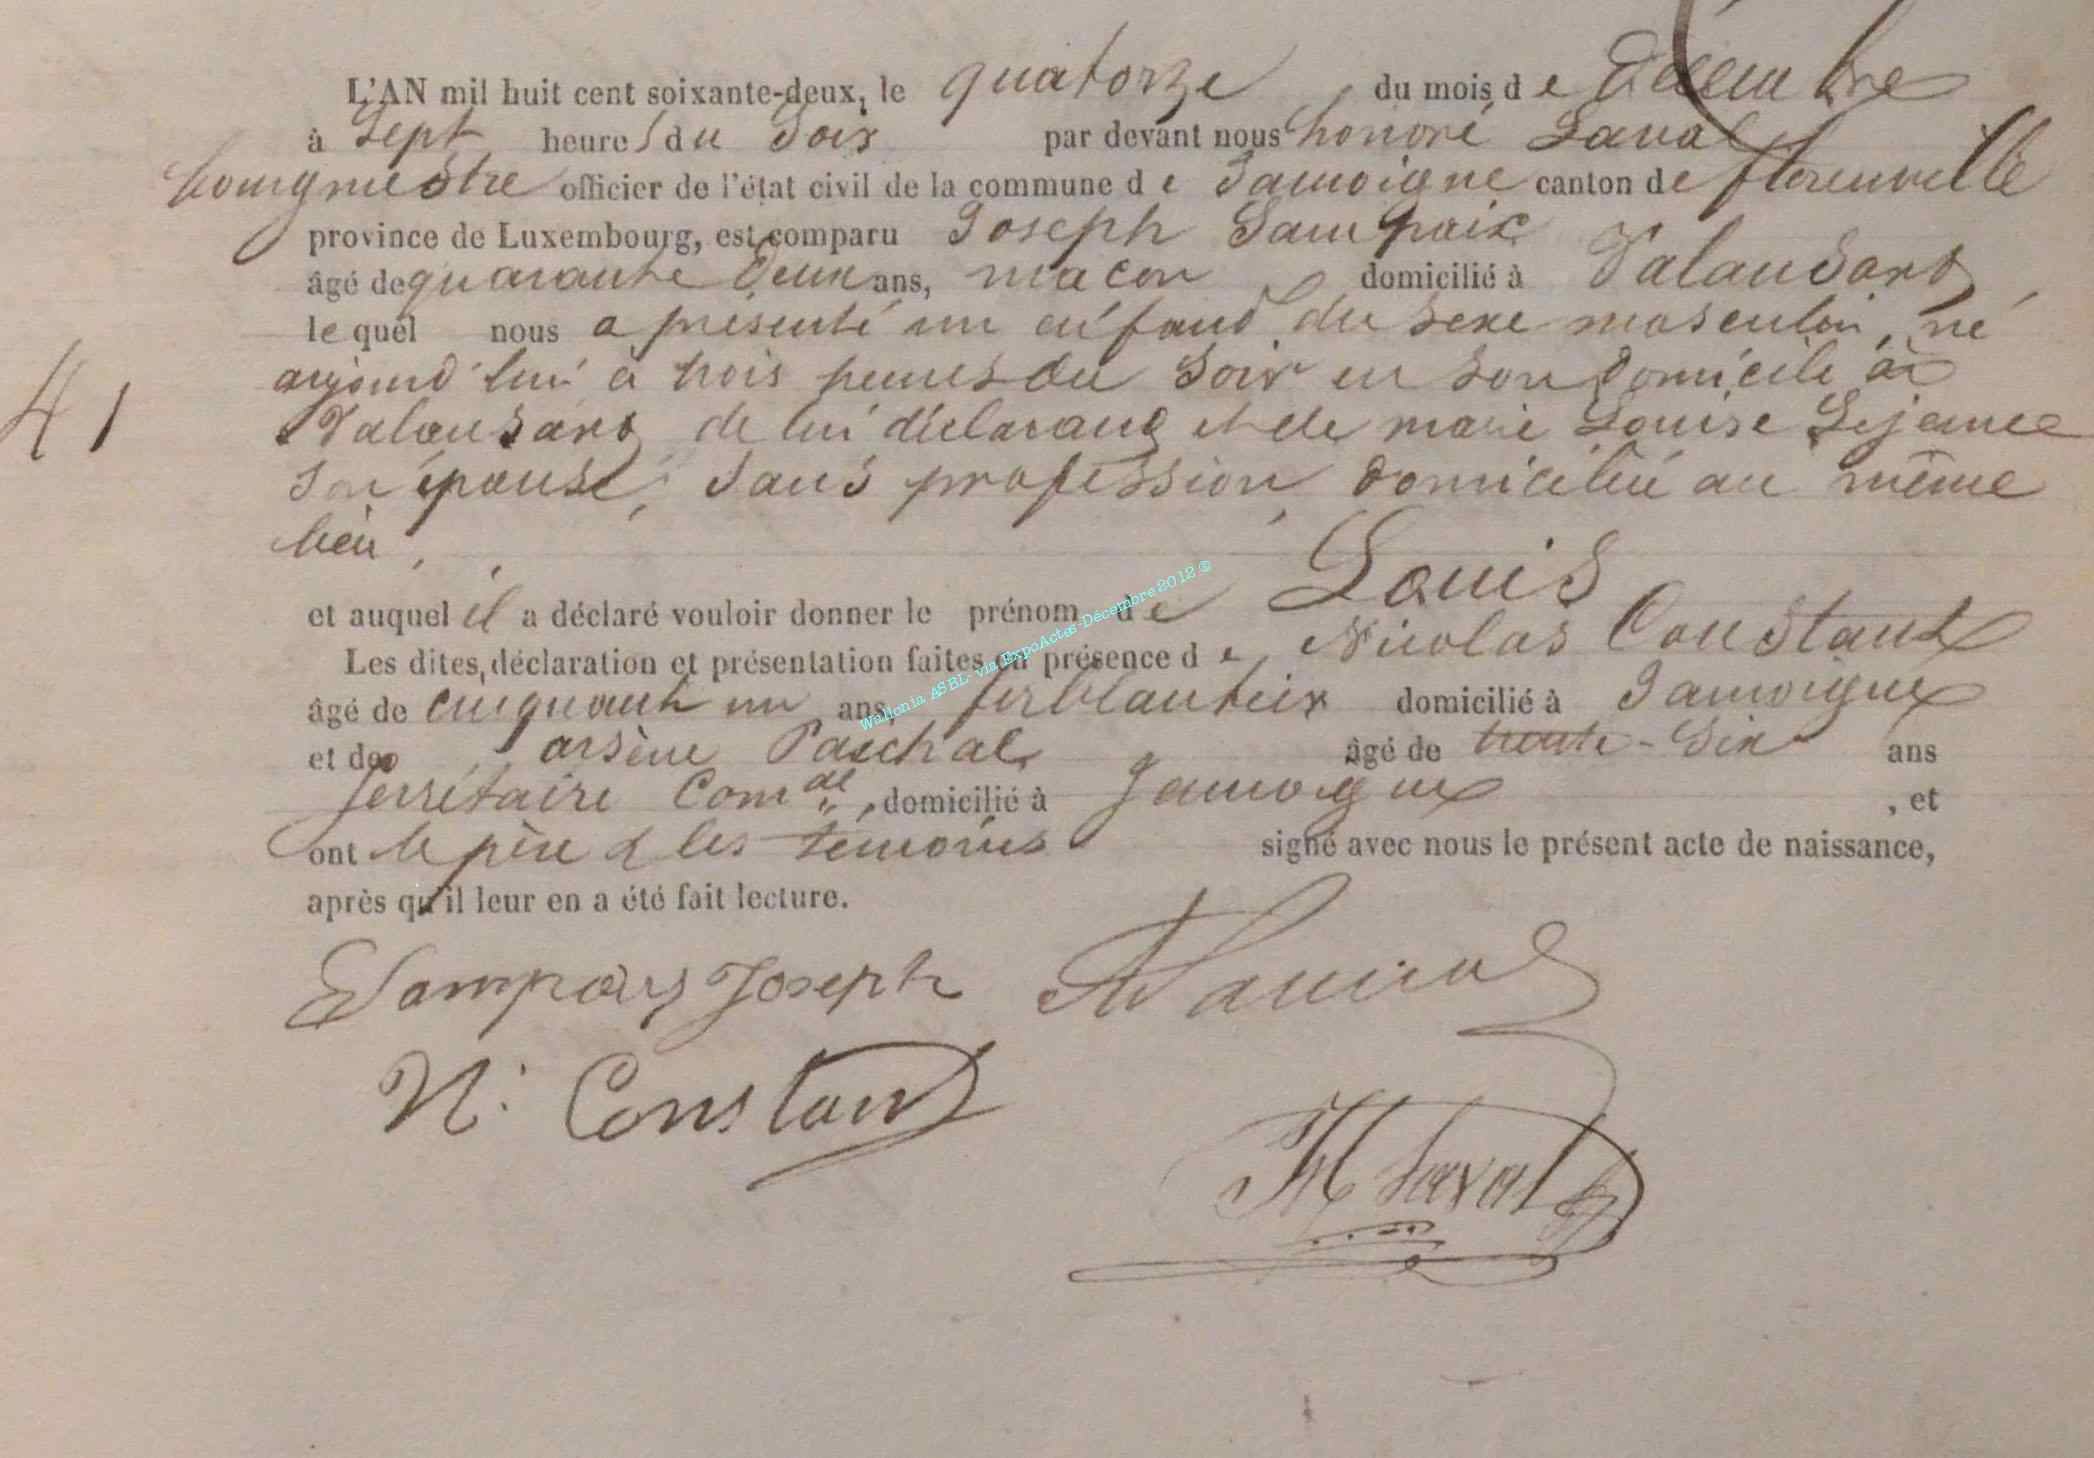 L'AN mil huit cent soixante-deux, le quatorze du mois de Décembre
à Sept heures du Soir par devant nous honoré Laval
bourgmestre officier de l'état civil de la commune de Jamoigne canton de florenville
province de Luxembourg, est comparu Joseph Lampaix
âgé de quarante deux ans, macon domicilié à Valansart
lequel nous a présenté un enfant du sexe masculin, né
aujourd'hui à trois heures du Soir en son domicile à
Valansart de lui déclarant et de marie Louise Lejeune
son épouse, sans profession, domiciliée au même
lieu,
et auquel il a déclaré vouloir donner le prénom de Louis
Les dites, déclaration et présentation faites en présence de Nicolas Constant
âgé de cinquante un ans, ferblantier domicilié à Jamoigne
et de arsène Paschal âgé de trente-six ans
secrétaire Comal, domicilié à Jamoigne, et
ont le père & les témoins signé avec nous le présent acte de naissance,
après qu'il leur en a été fait lecture.
41
Joseph
N. Constant
H Laval
Wallonia ASBL- via ExpoActes-Décembre 2012 ©